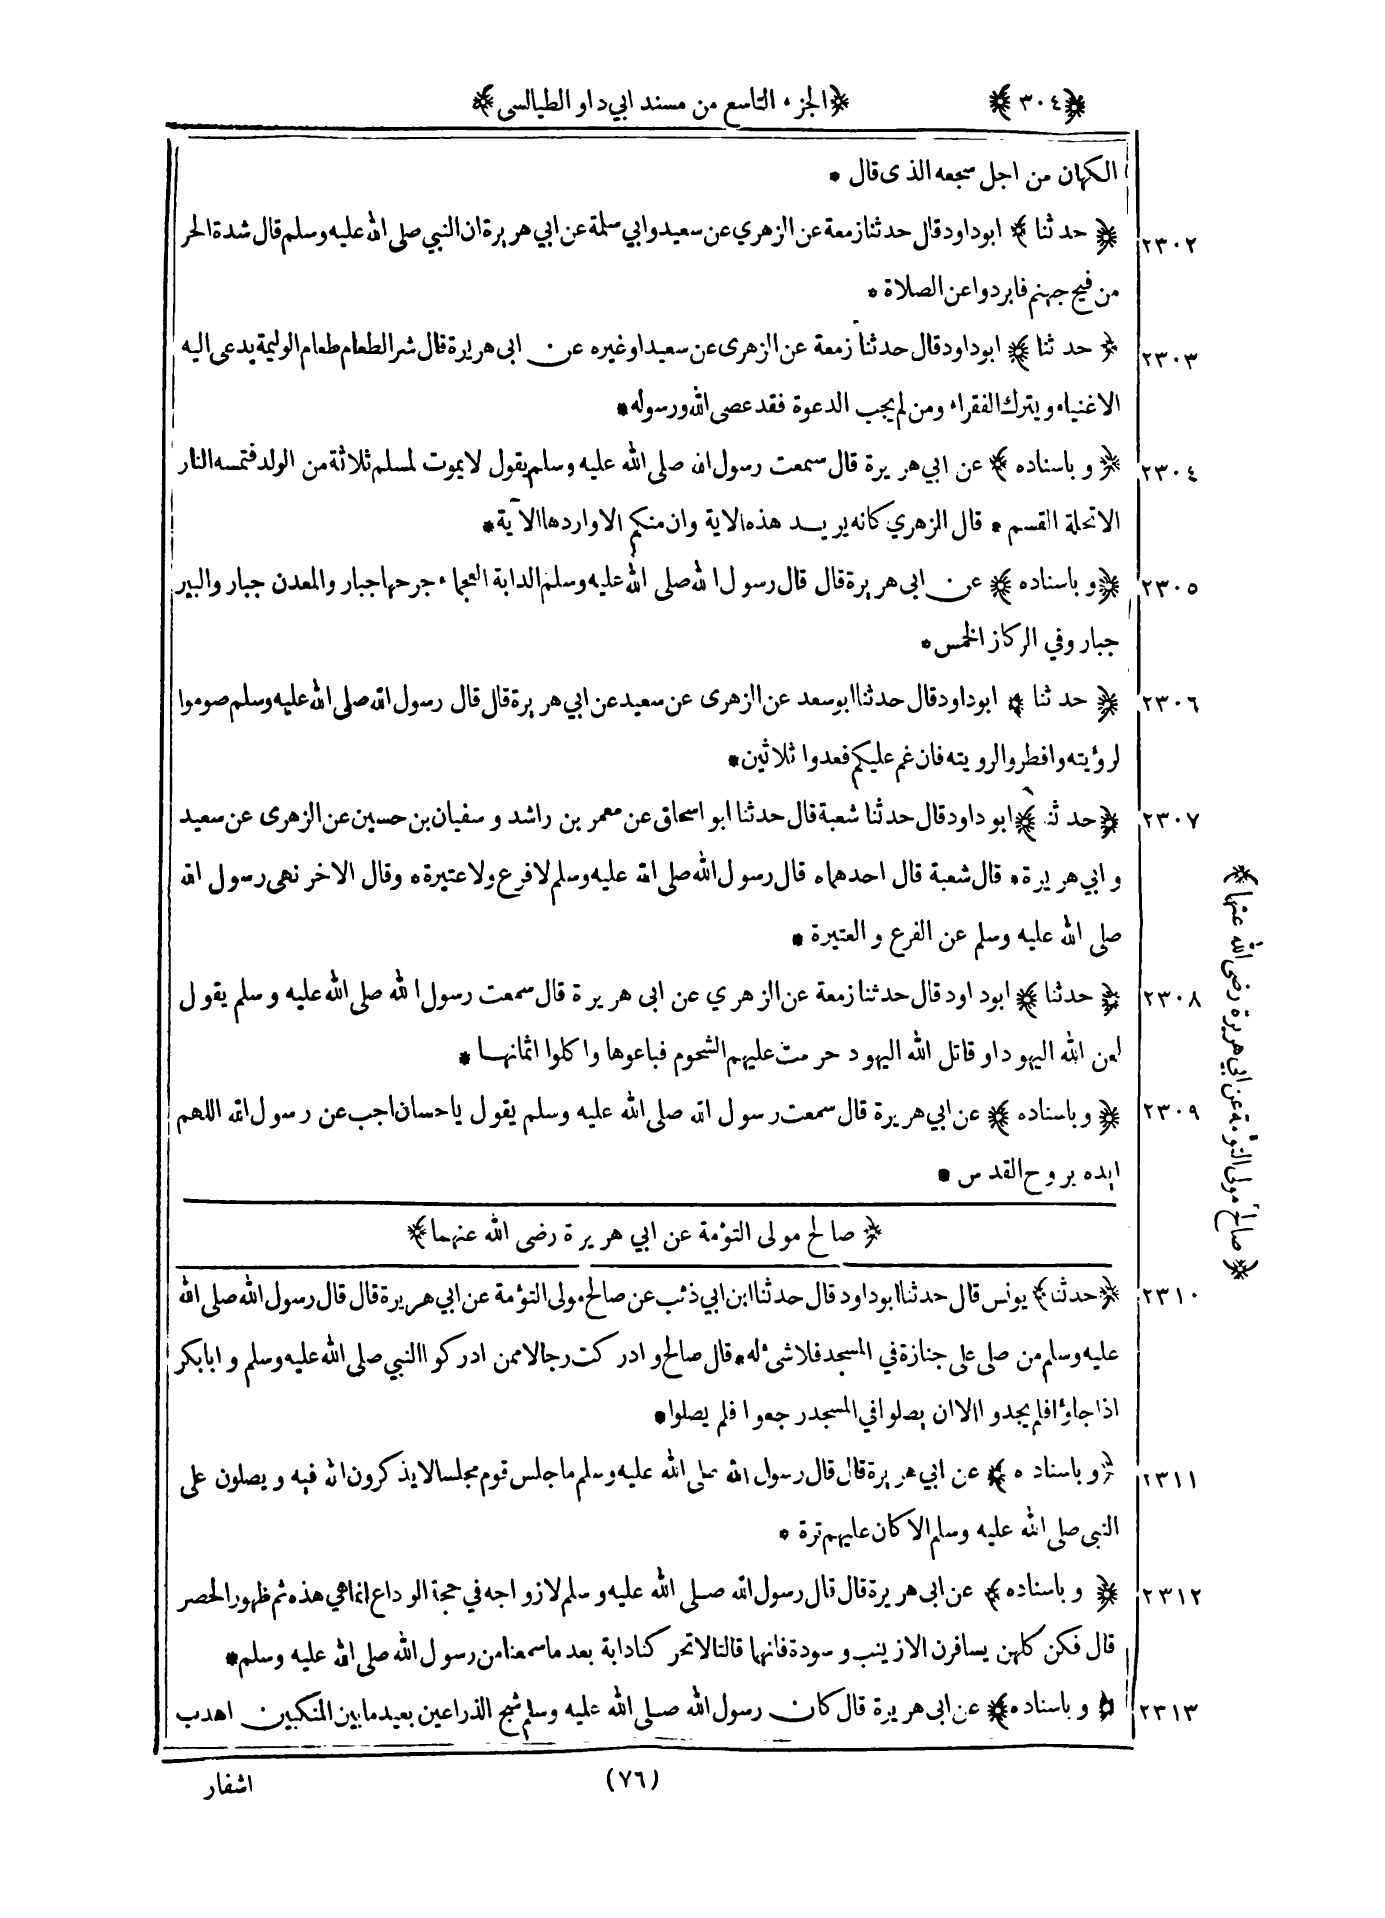 ﴿٣٠٤﴾ ﴿الجزء التاسع من مسند ابي داو الطيالسى﴾
الكهان من اجل سجعه الذى قال *
٢٣٠٢ ﴿ حدثنا ﴾ ابوداود قال حدثنا زمعة عن الزهري عن سعيد وابي سلمة عن ابي هريرة ان النبي صلى الله عليه وسلم قال شدة الحر
من فيح جهنم فابردوا عن الصلاة *
٢٣٠٣ ﴿ حدثنا ﴾ ابوداود قال حدثنا زمعة عن الزهرى عن سعيد او غيره عن ابى هريرة قال شر الطعام طعام الوليمة يدعى اليه
الاغنياء ويترك الفقراء ومن لم يجب الدعوة فقد عصى الله ورسوله *
٢٣٠٤ ﴿ وباسناده ﴾ عن ابي هريرة قال سمعت رسول الله صلى الله عليه وسلم يقول لا يموت لمسلم ثلاثة من الولد فتمسه النار
الا تحلة القسم * قال الزهري كانه يريد هذه الاية وان منكم الا واردها الآية *
٢٣٠٥ ﴿ وباسناده ﴾ عن ابى هريرة قال قال رسول الله صلى الله عليه وسلم الدابة العجماء جرحها جبار والمعدن جبار والبير
جبار وفي الركاز الخمس *
٢٣٠٦ ﴿ حدثنا ﴾ ابوداود قال حدثنا ابو سعد عن الزهرى عن سعيد عن ابي هريرة قال قال رسول الله صلى الله عليه وسلم صوموا
لرؤيته وافطروا لرويته فان غم عليكم فعدوا ثلاثين *
٢٣٠٧ ﴿ حدثنا ﴾ ابو داود قال حدثنا شعبة قال حدثنا ابو اسحاق عن معمر بن راشد و سفيان بن حسين عن الزهرى عن سعيد
و ابي هريرة * قال شعبة قال احدهما * قال رسول الله صلى الله عليه وسلم لا فرع ولا عتيرة * وقال الاخر نهى رسول الله
صلى الله عليه وسلم عن الفرع و العتيرة *
٢٣٠٨ ﴿ حدثنا ﴾ ابوداود قال حدثنا زمعة عن الزهري عن ابى هريرة قال سمعت رسول الله صلى الله عليه وسلم يقول
لعن الله اليهود او قاتل الله اليهود حرمت عليهم الشحوم فباعوها واكلوا اثمانها *
٢٣٠٩ ﴿ وباسناده ﴾ عن ابي هريرة قال سمعت رسول الله صلى الله عليه وسلم يقول ياحسان اجب عن رسول الله اللهم
ايده بروح القدس *
﴿ صالح مولى التوءمة عن ابي هريرة رضى الله عنهما ﴾
٢٣١٠ ﴿ حدثنا ﴾ يونس قال حدثنا ابوداود قال حدثنا ابن ابي ذئب عن صالح مولى التوءمة عن ابي هريرة قال قال رسول الله صلى الله
عليه وسلم من صلى على جنازة في المسجد فلا شىء له * قال صالح و ادركت رجالا ممن ادركوا النبي صلى الله عليه وسلم و ابابكر
اذا جاؤا فلم يجدوا الا ان يصلوا في المسجد رجعوا فلم يصلوا *
٢٣١١ ﴿ وباسناده ﴾ عن ابي هريرة قال قال رسول الله صلى الله عليه وسلم ما جلس قوم مجلسا لا يذكرون الله فيه و يصلون على
النبى صلى الله عليه وسلم الا كان عليهم ترة *
٢٣١٢ ﴿ و باسناده ﴾ عن ابى هريرة قال قال رسول الله صلى الله عليه وسلم لازواجه في حجة الوداع انما هي هذه ثم ظهور الحصر
قال فكن كلهن يسافرن الا زينب و سودة فانهما قالتا لا تحركنا دابة بعد ما سمعنا من رسول الله صلى الله عليه وسلم *
٢٣١٣ ﴿ و باسناده ﴾ عن ابى هريرة قال كان رسول الله صلى الله عليه وسلم شبح الذراعين بعيد ما بين المنكبين اهدب
﴿ صالح مولى التوءمة عن ابي هريرة رضى الله عنهما ﴾
(٧٦)
اشفار